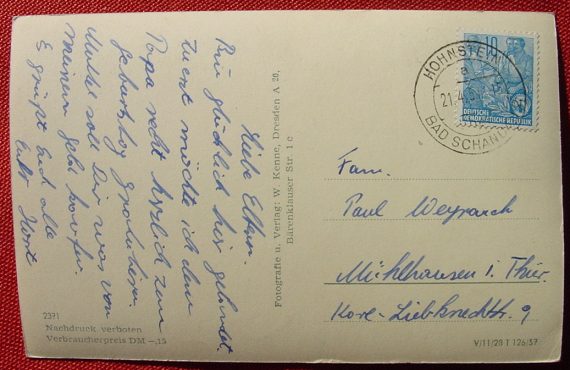 Liebe Eltern.
Bin glücklich hier gelandet.
Zuerst möchte ich dem
Papa recht herzlich zum
Geburtstag gratulieren.
Mutter soll Dir was von
meinem Geld kaufen.
Es grüßt Euch alle
Euer Horst
2391
Nachdruck verboten
Verbraucherpreis DM –,15
Fotografie u. Verlag: W. Kenne, Dresden A 20,
Bärenklauser Str. 1c
HOHNSTEIN
a
BAD SCHAN
10
DEUTSCHE
DEMOKRATISCHE REPUBLIK
Fam.
Paul Weyrauch
Mühlhausen i. Thür.
Karl-Liebknechtstr. 9
V/11/28 T 126/57